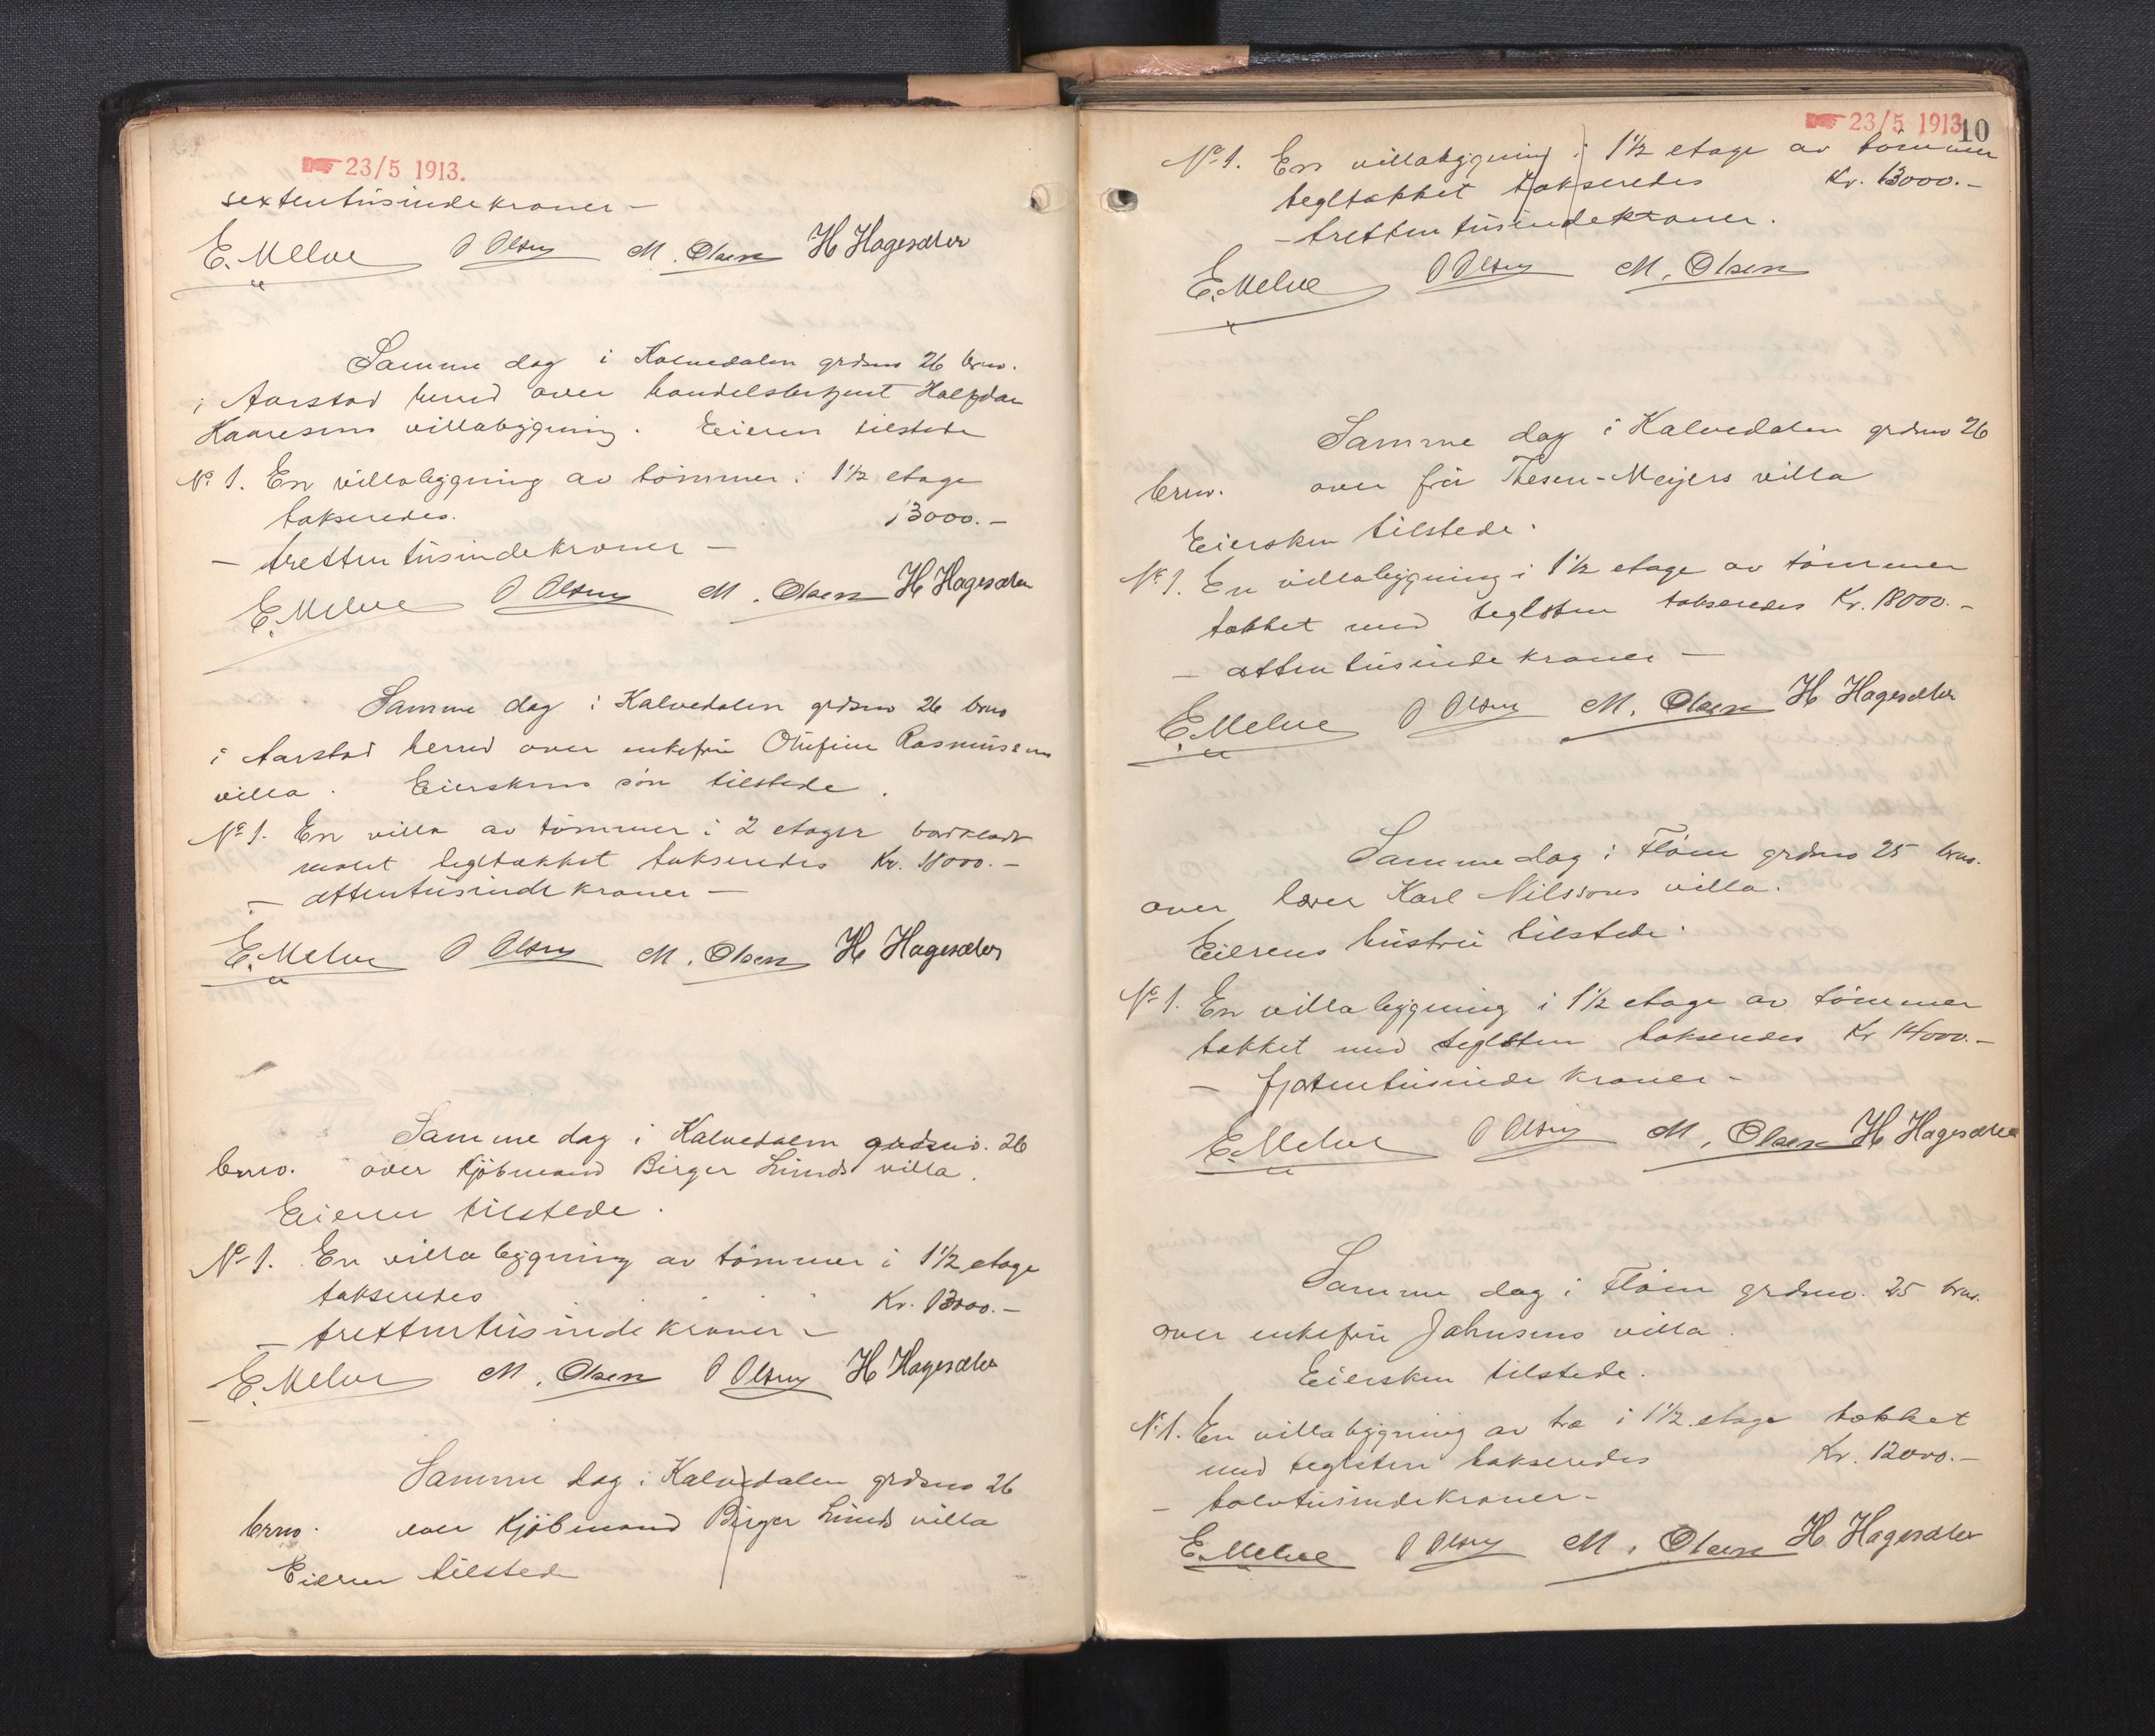 23/5 1913.
sextentusindekroner –
E. Melve O Olsen M. Olsen H Hagesæter
Samme dag i Kalvedalen grdsno 26 brno.
i Aarstad herred over handelsbetjent Halfdan
Kaaresens villabygning. Eieren tilstede
No 1. En villabygning av tömmer i 1 1/2 etage
takseredes. 13000.–
– trettentusindekroner –
E. Melve O Olsen M. Olsen H Hagesæter
Samme dag i Kalvedalen grdsno 26 brno
i Aarstad herred over enkefru Olufine Rasmusens
villa. Eierskens sön tilstede.
No 1. En villa av tömmer i 2 etager bordklædt
malet tegltækket takseredes Kr. 18000.–
– attentusinde kroner –
E. Melve O Olsen M. Olsen H Hagesæter
Samme dag i Kalvedalen grdsno. 26
brno. over Kjöbmand Birger Lunds villa.
Eieren tilstede.
No 1. En villabygning av tömmer i 1 1/2 etage
takseredes Kr. 13000.–
– trettentusinde kroner –
E. Melve M. Olsen O Olsen H Hagesæter
Samme dag i Kalvedalen grdsno 26
brno. over Kjöbmand Birger Lunds villa
Eieren tilstede
23/5 1913
10
No 1. En villabygning i 1 1/2 etage av tömmer
tegltækket takseredes Kr. 13000.–
– trettentusindekroner.
E. Melve O Olsen M. Olsen
Samme dag i Kalvedalen grdsno 26
brno. over fru Thesen-Meyers villa
Eiersken tilstede.
No 1. En villabygning i 1 1/2 etage av tömmer
tækket med teglsten takseredes Kr. 18000.–
– attentusinde kroner –
E. Melve O Olsen M. Olsen H Hagesæter
Samme dag i Flöen grdsno 25 brno.
over lærer Karl Nilssons villa.
Eierens hustru tilstede.
No 1. En villabygning i 1 1/2 etage av tömmer
tækket med teglsten takseredes Kr 14000.–
– fjortentusinde kroner –
E. Melve O Olsen M. Olsen H Hagesæter
Samme dag i Flöen grdsno. 25 brno.
over enkefru Jahnsens villa.
Eiersken tilstede.
No 1. En villabygning av træ i 1 1/2 etage tækket
med teglsten takseredes Kr. 12000.–
– tolvtusindekroner –
E. Melve O Olsen M. Olsen H Hagesæter